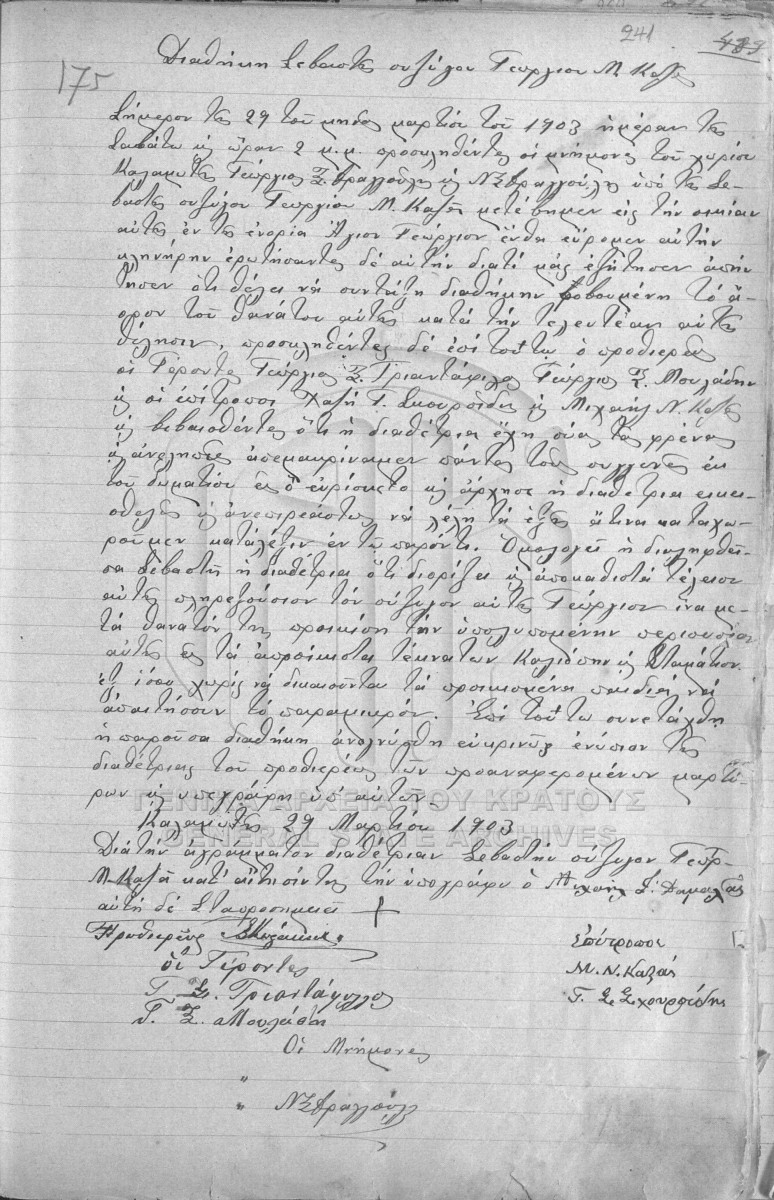 241 489
175
Διαθήκη Σεβαστῆς συζύγου Γεωργίου Μ. Καζᾶ
Σήμερον τῆς 29 τοῦ μηνὸς μαρτίου τοῦ 1903 ἡμέραν τῆς
Σαββάτω κὶ ὥραν 2 μ.μ. προσκληθέντες οἱ μνήμονες τοῦ χωρίου
Καλαμωτῆς Γεώργιος Ξ. Φραγγούλης κὶ Ν Ξ Φραγγούλης ὑπὸ τῆς Σε-
βαστῆς συζύγου Γεωργίου Μ. Καζᾶ μετέβημεν εἰς τὴν οικίαν
αὐτῆς ἐν τῆ ἐνορία Ἁγίου Γεωργίου ἔνθα εὕρομεν αὐτὴν
κληνήρην ἐρωτήσαντες δὲ αὐτὴν διατί μᾶς ἐζήτησεν ἀπήν
τησεν ὅτι θέλει νὰ συντάξη διαθήκην φοβουμένη τὸ ἄ-
ορον τοῦ θανάτου αὐτῆς κατὰ τὴν τελευτέαν αὐτῆς
θέλησιν, προσκληθέντες δὲ ἐπὶ τούτω ὁ προθιερεὺς
οἱ Γέροντες Γεώργιος Ξ. Τριαντάφιλος Γεώργιος Ξ. Μουλάδην
κὶ οἱ ἐπίτροποι Χαζῆ Γ. Σκουρσίδης κὶ Μιχαὴλ Ν. Καζᾶς
κὶ βεβαιοθέντες ὅτι ἡ διαθέτρια ἔχη σώας τὰς φρένας
κὶ ἀνελιπεῖς ἀπεμακρίναμεν πάντας τοὺς συγγενεῖς ἐκ
τοῦ δωματίου εἰς ὃ εὑρίσκετο κὶ ἄρχησε ἡ διαθέτρια εικει-
οθελῶς κὶ ἀνεπιρεάστως νὰ λέγη τὰ ἑξῆς ἅτινα καταχω-
ροῦμεν κατάλέξιν ἐν τῶ παρόντι. Ὁμολογεῖ ἡ διαληφθεῖ-
σα Σεβαστὴ ἡ διαθέτρια ὅτι διορίζει κὶ ἀποκαθιστᾶ τέλειον
αὐτῆς πληρεξούσιον τὸν σύζυγον αὐτῆς Γεώργιον ἵνα με-
τὰ θανατόν της προικίση τὴν ὑπολυπομένην περιουσίαν
αὐτῆς εἰς τὰ ἀπροίκιστα τέκνα των Καλιόπην κὶ Σταμάτιον
ἐξ ἴσου χωρὶς νὰ δικαιοῦνται τὰ προικισμένα παιδιὰ νὰ
ἀπαιτήσουν τὸ παραμικρόν. Ἐπὶ τούτω συνετάχθη
ἡ παροῦσα διαθήκη ἀναγνώσθη εὐκρινῶς ἐνώπιον τῆς
διαθέτριας τοῦ προθιερέως τῶν προαναφερομένων μαρτύ-
ρων κὶ υπεγράφη ὑπ' αὐτων.
Καλαμωτῆς 29 Μαρτίου 1903
Διὰ τὴν ἀγράμματον διαθέτριαν Σεβαστὴν σύζυγον Γεωρ-
Μ. Καζᾶ κατ' αἴτησίν της τὴν ὑπογράφω ὁ Μιχαὴλ Γ. Δαμαλᾶς
αὐτὴ δὲ Σταυροσημειεῖ +
Πρωθιερεὺς
οἱ Γέροντες
Γ. Ξ. Τριαντάφυλλος
Γ. Ξ. Μουλάδη
Ἐπίτροποι
Μ. Ν. Καζάς
Γ. Σ. Σχουρσίδης
Οἱ Μνήμονες
"
" Ν Ξ Φραγγούλη
ΓΕΝΙΚΑ ΑΡΧΕΙΑ ΤΟΥ ΚΡΑΤΟΥΣ
GENERAL STATE ARCHIVES